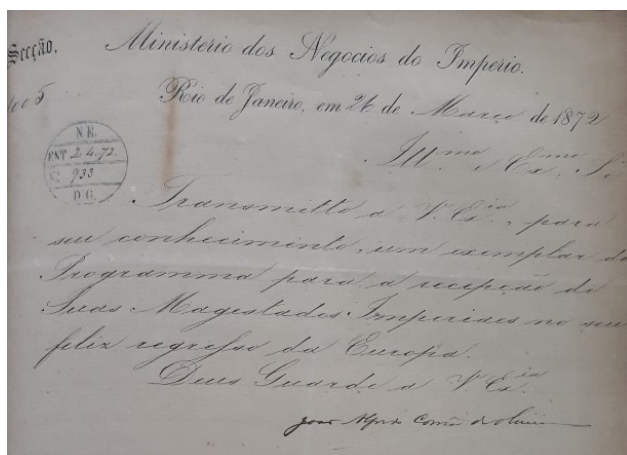 Secção.
Ministerio dos Negocios do Imperio.
Rio de Janeiro, em 26 de Março de 1872
N.E.
ENT 2.4.72.
933
D.G.
Ill.mo e Ex.mo Sr
Transmitto a V. Ex.ia, para
seu conhecimento, um exemplar do
Programma para a recepção de
Suas Magestades Imperiaes no seu
feliz regresso da Europa.
Deus Guarde a V. Ex.ia
João Alfredo Corrêa de Oliveira